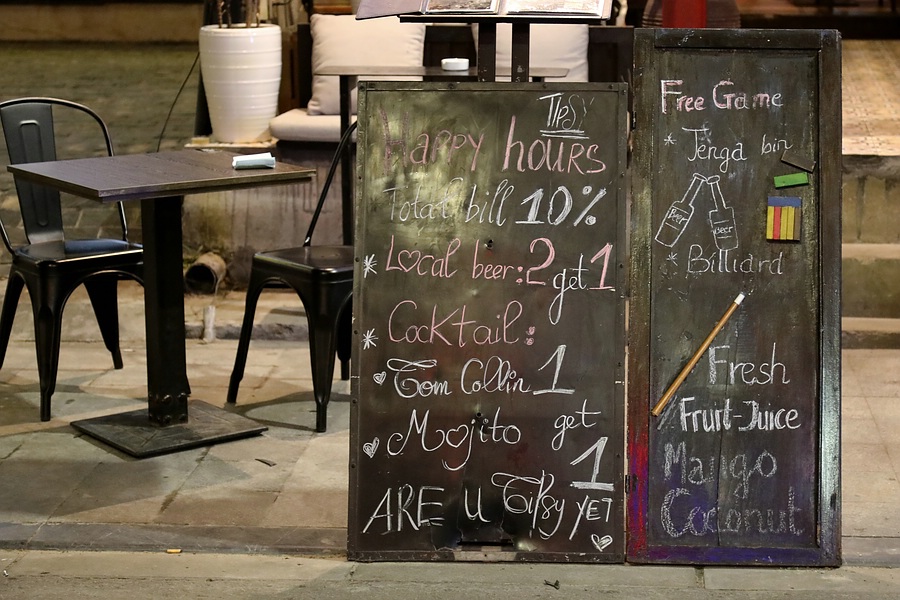 TIPSY
Happy hours
Total bill 10%
* Local beer: 2 get 1
* Cocktail:
Tom Collin 1
Mojito get
1
ARE u Tipsy YET
Free Game
* Jenga bin
Beer Beer
* Billiard
Fresh
Fruit-Juice
Mango
Coconut